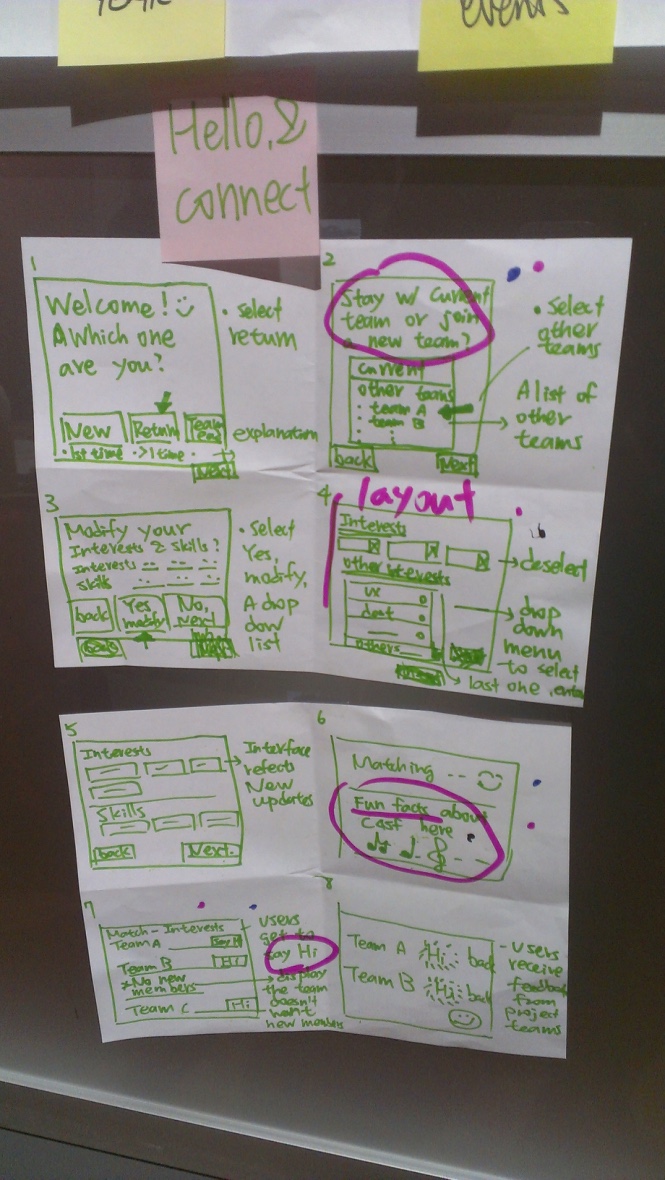 events
Hello, &
connect
1
Welcome!
A Which one
are you?
New
Return
Team
1st time
>1 time
Next
• Select
return
explanation
2
Stay w/ Current
team or join
a new team?
Current
other teams
: team A
: team B
back
Next
• Select
other
teams
A list of
other
teams
3
Modify your
Interests & Skills?
Interests
Skills
back
Yes
modify
No,
Next
• Select
Yes,
modify,
A drop
dow
list
4
layout
Interests
other interests
ux
others
deselect
drop
down
menu
to select
last one, enter
5
Interests
Skills
back
Next.
Interface
reflects
New
updates
6
Matching ...
Fun facts about
CaSt here
7
Match - Interests
Team A
Say Hi
Team B
Hi
*No new
members
Team C
Hi
users
get to
say Hi
display
the team
doesn't
want
new members
8
Team A Hi back
Team B Hi back
- Users
receive
feedback
from
project
teams